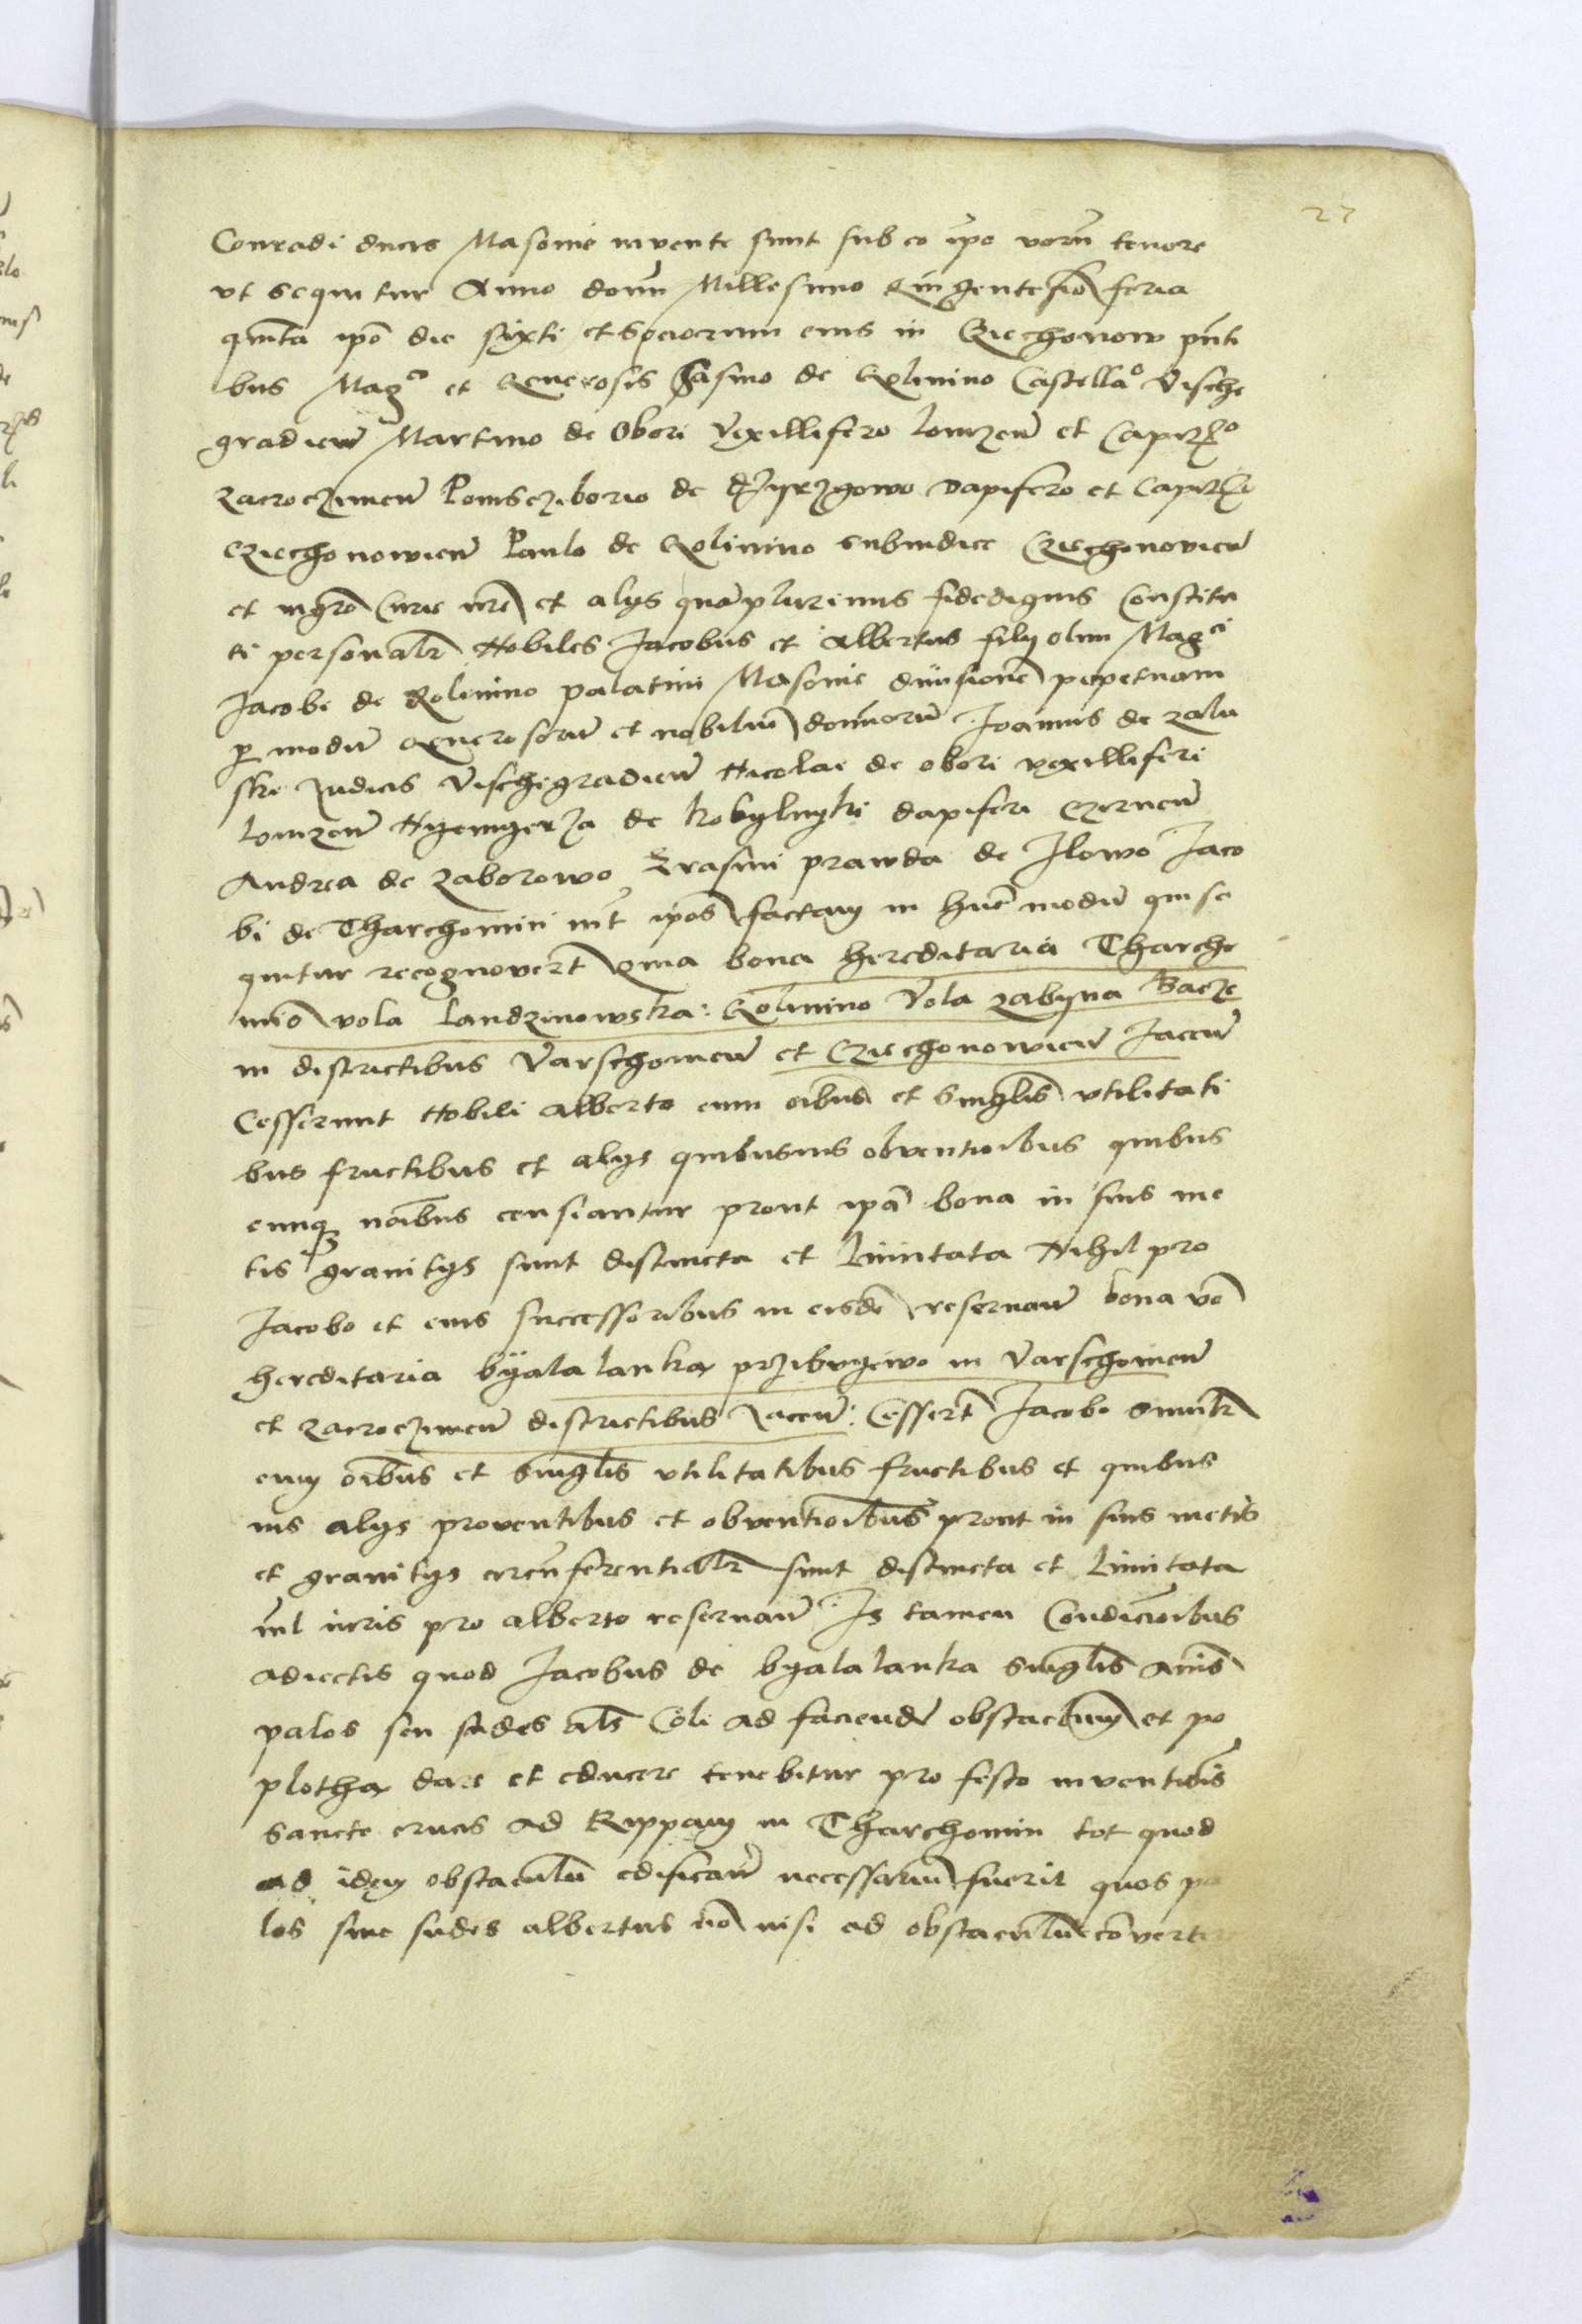 27
Conradi ducis Masovie invente sunt sub eo ipo verū tenore
ut sequitur Anno domī Millesimo Quingentesiō feria
quīta ipō die sixti et sociorum eius in Cziechonow pñti
bus Mag^co et Generosis Sasino de Golimino Castellā^o Vische
gradieñ Martino de Obori Vexillifero Lomzeñ et Capit^o
Zacrocziment Pomscziborio de dzyrzgowo dapifero et Capit
Cziechonowieñ Paulo de Golimino subiudice Cziechonovieñ
et mgrō Curie nrē et alys quāplurimis fidedignis Constitu
ti personalr Nobiles Jacobus et Albertus fily olim Mag^ci
Jacobi de Golimino palatini Masovie divisionē ppetuam
p modū Generosorū et nobiliū dominorū Joannis de zalu
ski Judicis Vischegradieñ Nicolai de obori vexilliferi
lomzeñ Nyemyerza de kobylnyki dapiferi Czerneñ
Andrea de zaborowo Erasmi prawda de Jlowo Jaco
bi de Tharchomin int ipos factam in hūc modū qui se
quitur recognovert quia bona hereditaria Tharcho
mio vola landzinowska: Golimino Vola zabyna Bacze
in districtibus Varschovieñ et Cziechonowieñ Jaceñ
Cesserunt Nobili alberto cum oībus et singlis utilitati
bus fructibus et alys quibusuis obventioībus quibus
cunqȝ noībus censiantur prout ipā bona in suis me
tis granitys sunt distincta et limitata Nihil pro
Jacobo et eius successoribus in eisdē reservañ bona vō
hereditaria byala lanka przibugewo in Varschovieñ
et zacrocziment districtibus Jaceñ: Cessert Jacobo
cum oībus et singlis utilitatibus fructibus et quibus
uis alys proventibus et obventioībus prout in suis metis
et granitys circūferentialr sunt distincta et limitata
nīl iuris pro alberto reservañ. Is tamen Condicioībus
adiectis quod Jacobus de byala lanka singlis annis
palos seu sudes als Coli ad faciendū obstaclum et po
plotha dare et educere tenebitur pro festo inventiōis
sancte crucis ad Rippam in Tharchomin tot quod
ad idem obstaculū edificañ necessariū fuerit quos pa
los sive sudes albertus nō nisi ad obstaculū convertere